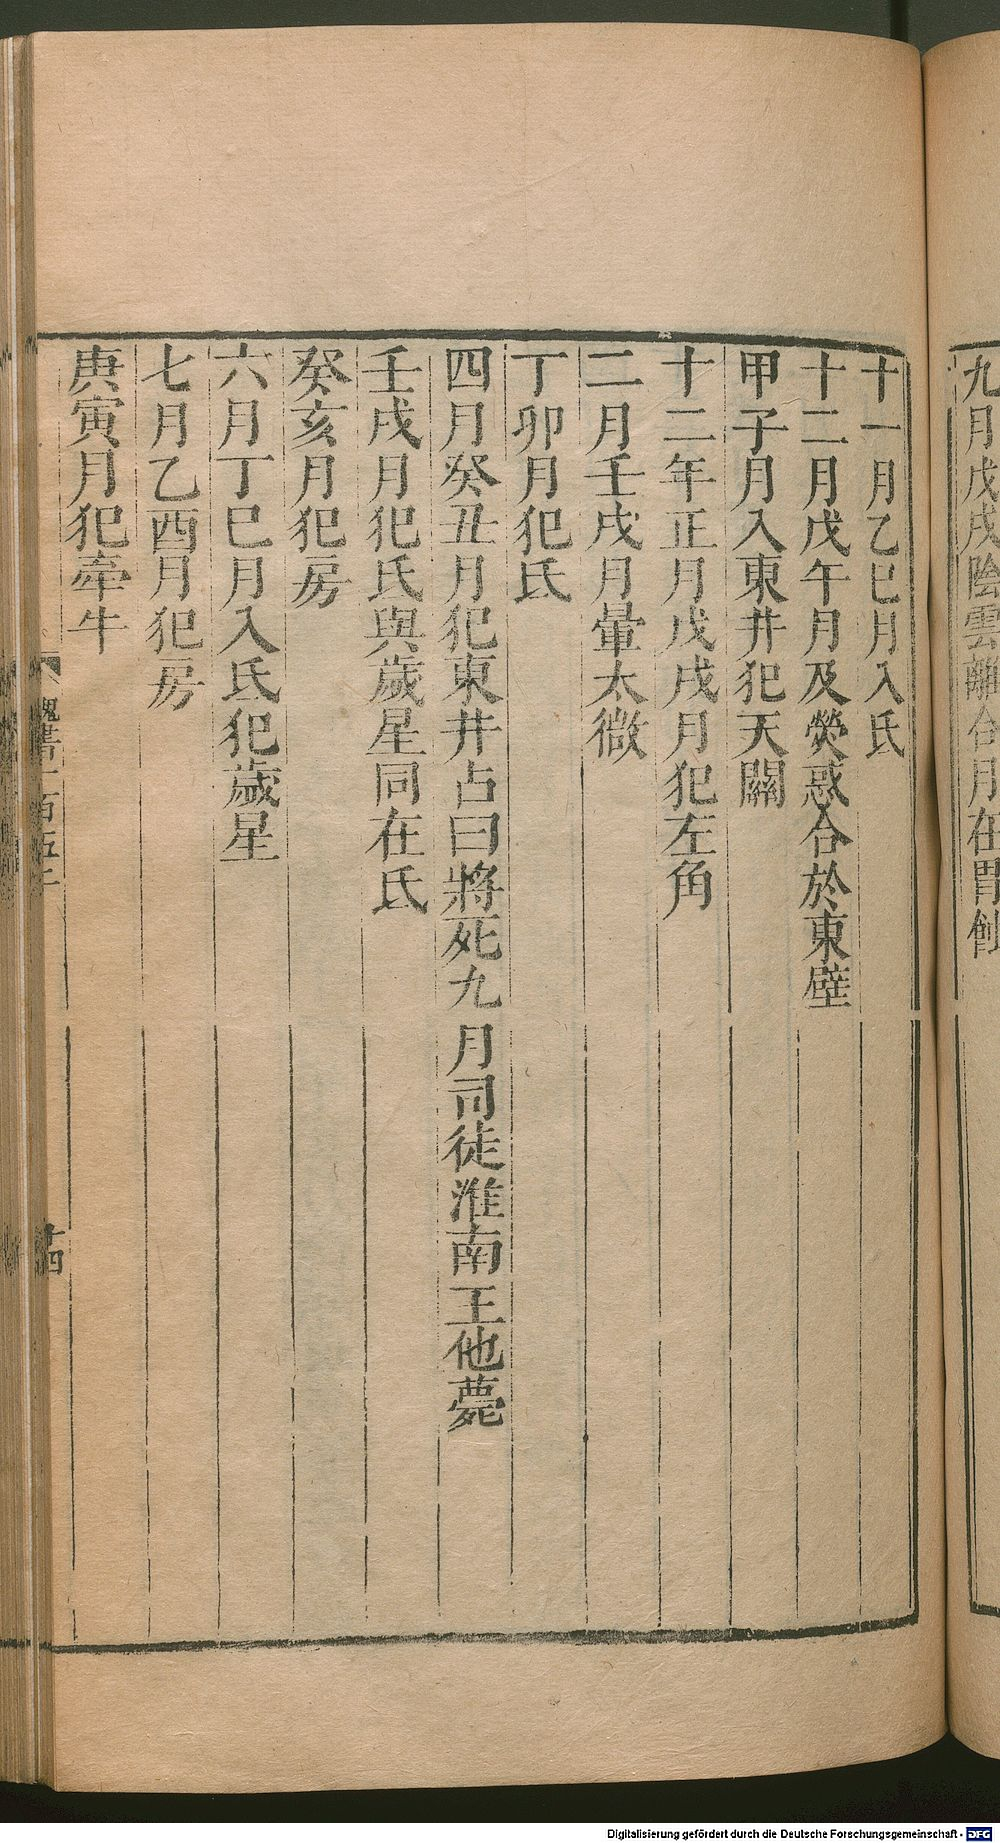 九月戊戌陰雲離合月在胃蝕
十一月乙巳月入氐
十二月戊午月及熒惑合於東壁
甲子月入東井犯天關
十二年正月戊戌月犯左角
二月壬戌月暈太微
丁卯月犯氐
四月癸丑月犯東井占曰將死九月司徒淮南王他薨
壬戌月犯氐與歲星同在氐
癸亥月犯房
六月丁巳月入氐犯歲星
七月乙酉月犯房
庚寅月犯牽牛
魏書一百五
十四
Digitalisierung gefördert durch die Deutsche Forschungsgemeinschaft - DFG